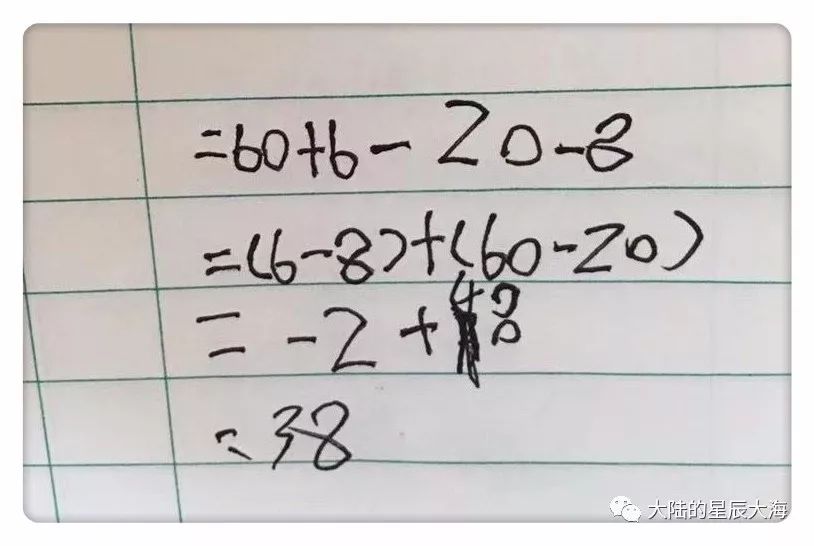 =60+6-20-8
=(6-8)+(60-20)
=-2+40
=38
大陆的星辰大海